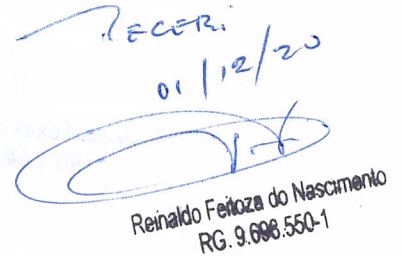 RECEBI
01/12/20
Reinaldo Feitoza do Nascimento
RG. 9.698.550-1